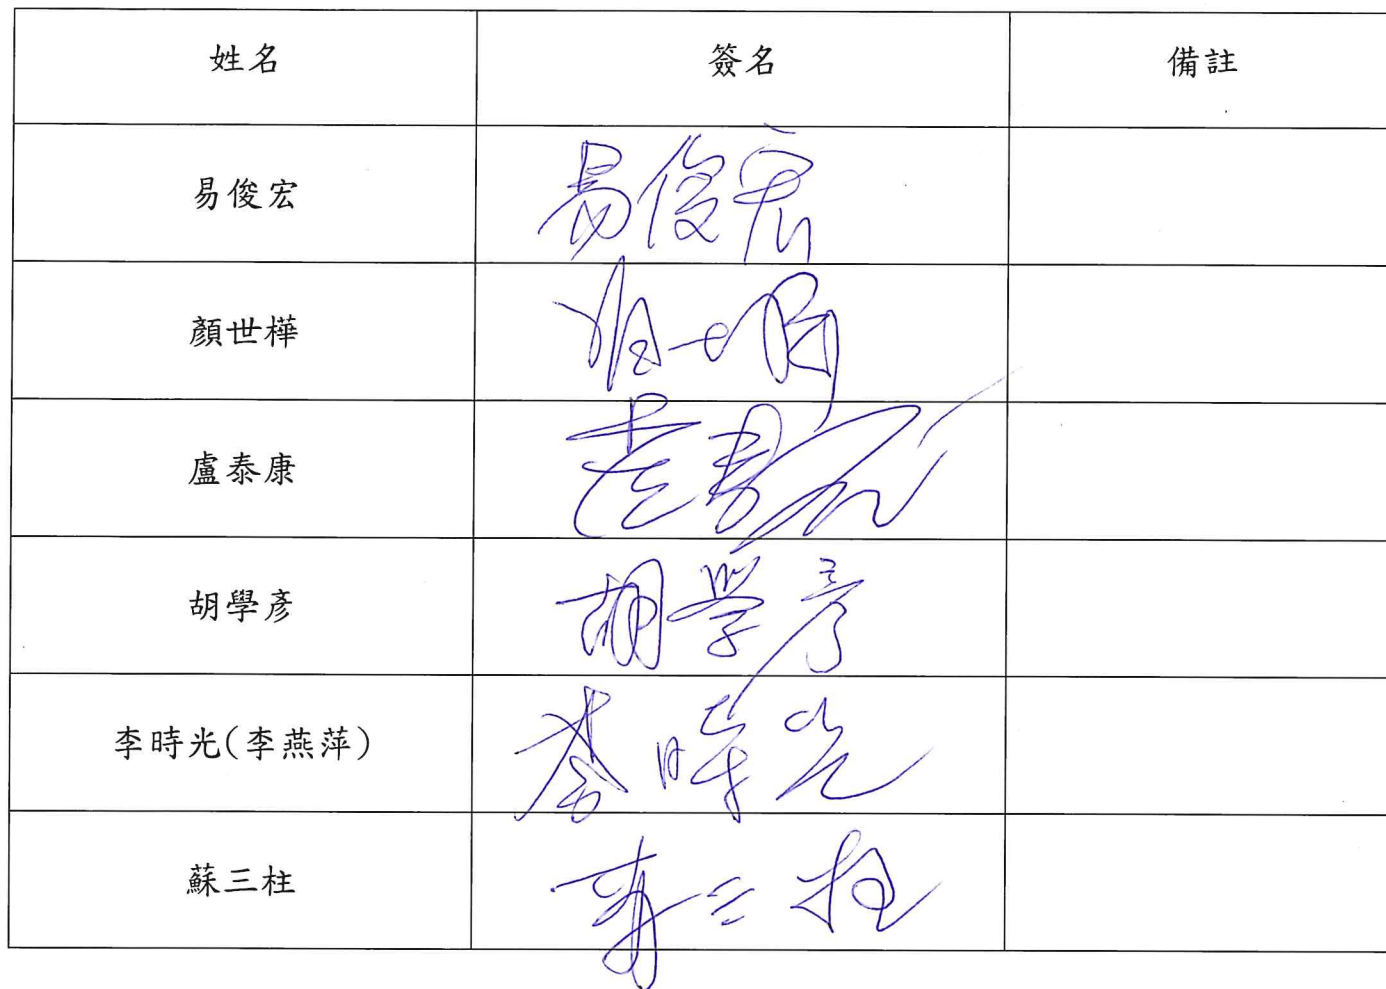 姓名 簽名 備註
易俊宏 易俊宏
顏世樺
盧泰康
胡學彥 胡學彥
李時光(李燕萍) 李時光
蘇三柱